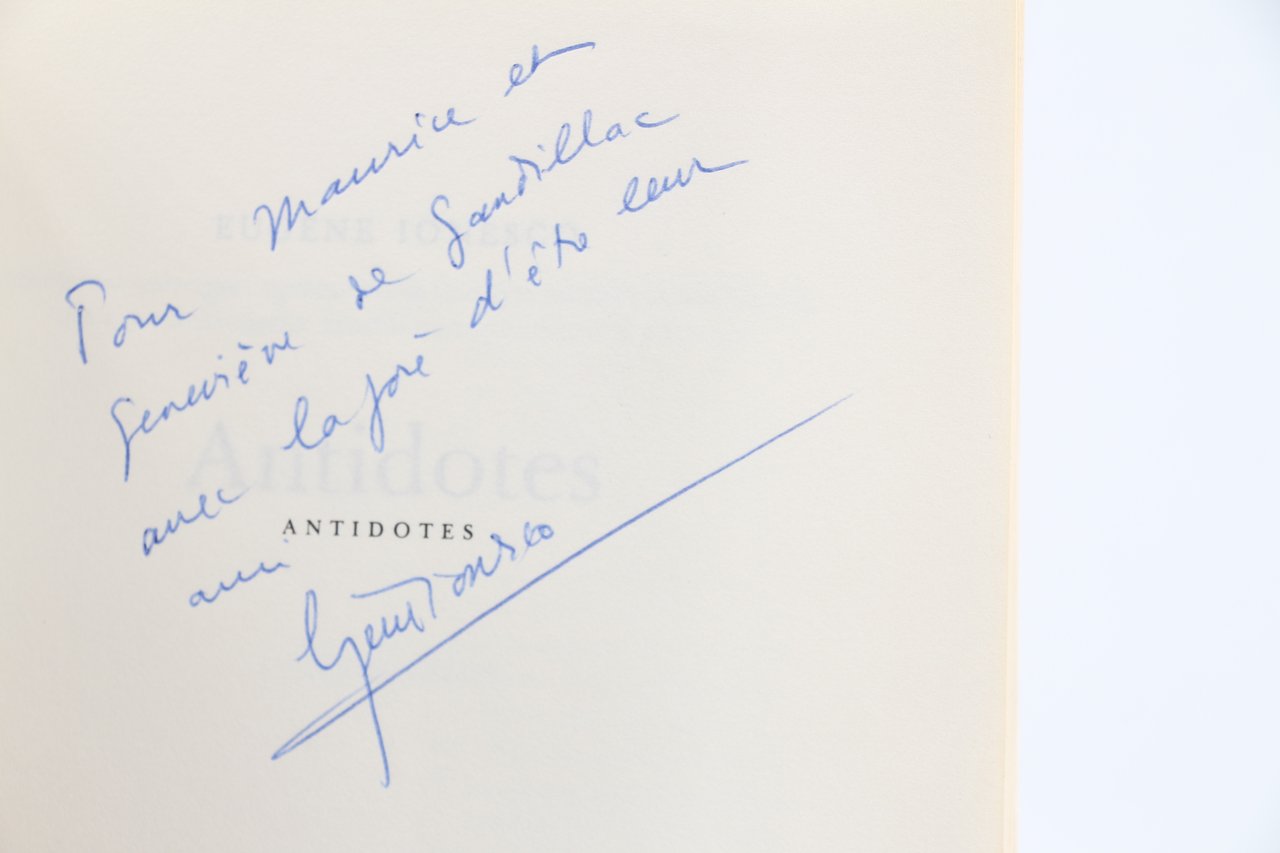 Pour Maurice et
Geneviève de Gandillac
avec la joie d'être leur
ami
Eugène Ionesco
ANTIDOTES
EUGÈNE IONESCO
Antidotes